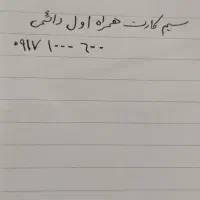 سیم کارت همراه اول دائمی
۰۹۱۷ ۱۰۰۰ ۶۰۰